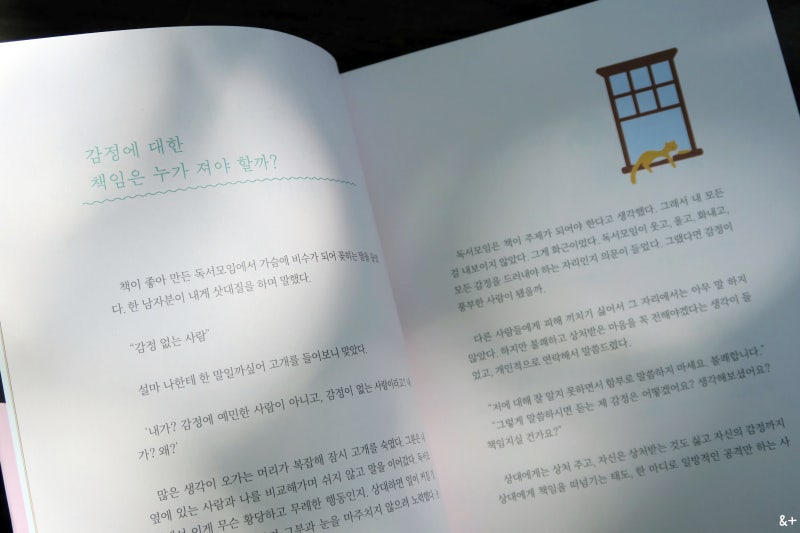 감정에 대한
책임은 누가 져야 할까?
책이 좋아 만든 독서모임에서 가슴에 비수가 되어 꽂히는 말을
다. 한 남자분이 내게 삿대질을 하며 말했다.
“감정 없는 사람”
설마 나한테 한 말일까싶어 고개를 들어보니 맞았다.
‘내가? 감정에 예민한 사람이 아니고, 감정이 없는 사람이라고?
가? 왜?’
많은 생각이 오가는 머리가 복잡해 잠시 고개를 숙였다. 그분은
옆에 있는 사람과 나를 비교해가며 쉬지 않고 말을 이어갔다.
이게 무슨 황당하고 무례한 행동인지. 상대하면 일이
그분과 눈을 마주치지 않으려 노력했다
독서모임은 책이 주제가 되어야 한다고 생각했다. 그래서 내 모든
걸 내보이지 않았다. 그게 화근이었다. 독서모임이 웃고, 울고, 화내고,
모든 감정을 드러내야 하는 자리인지 의문이 들었다. 그랬다면 감정이
풍부한 사람이 됐을까.
다른 사람들에게 피해 끼치기 싫어서 그 자리에서는 아무 말 하지
않았다. 하지만 불쾌하고 상처받은 마음을 꼭 전해야겠다는 생각이 들
었고, 개인적으로 연락해서 말씀드렸다.
“저에 대해 잘 알지 못하면서 함부로 말씀하지 마세요. 불쾌합니다.”
“그렇게 말씀하시면 듣는 제 감정은 어떻겠어요? 생각해보셨어요?
책임지실 건가요?”
상대에게는 상처 주고, 자신은 상처받는 것도 싫고 자신의 감정까지
상대에게 책임을 떠넘기는 태도, 한 마디로 일방적인 공격만 하는 사
&+